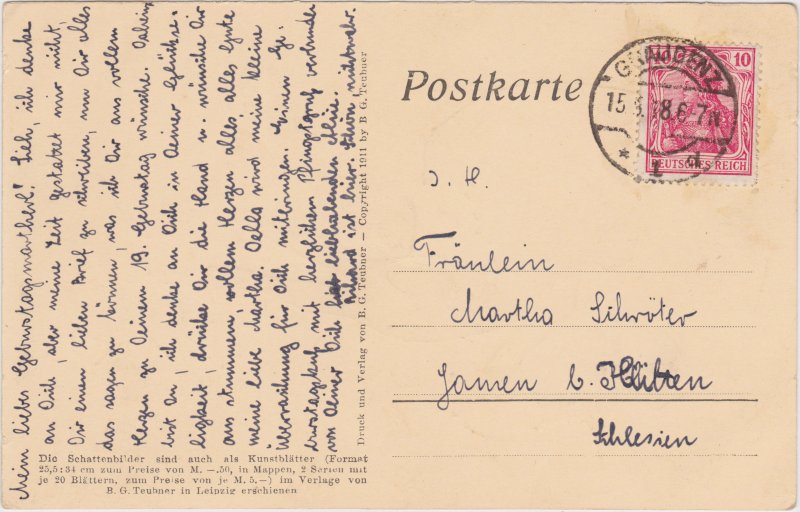 Mein liebes Geburtstagsmartherl! Sieh, ich denke
an Dich, aber meine Zeit gestattet mir nicht
Dir einen lieben Brief zu schreiben, um Dir alles
das sagen zu können, was ich Dir aus vollem
Herzen zu Deinem 19. Geburtstag wünsche. Dahin
bist Du, ich denke an Dich in Deiner Glückse-
ligkeit, drücke Dir die Hand u. wünsche Dir
aus stimmem vollem Herzen alles alles Gute
meine liebe Martha. Della wird meine kleine
Überraschung für Dich mitbringen. Einen Ge-
burtstagskuß mit herzlichem Pfingstgruß verbunden
von Deiner Dich liebhabenden
ist hier. Schon
Die Schattenbilder sind auch als Kunstblätter (Format
25,5:34 cm zum Preise von M. —.50, in Mappen, 2 Serien mit
je 20 Blättern, zum Preise von je M. 5.—) im Verlage von
B. G. Teubner in Leipzig erschienen
Druck und Verlag von B. G. Teubner – Copyright 1911 by B. G. Teubner
Postkarte
GRAUDENZ
15.5.18.6-7N
* 1 d
10
DEUTSCHES REICH
I. H.
Fräulein
Martha Schröter
Jamen b.
Schlesien